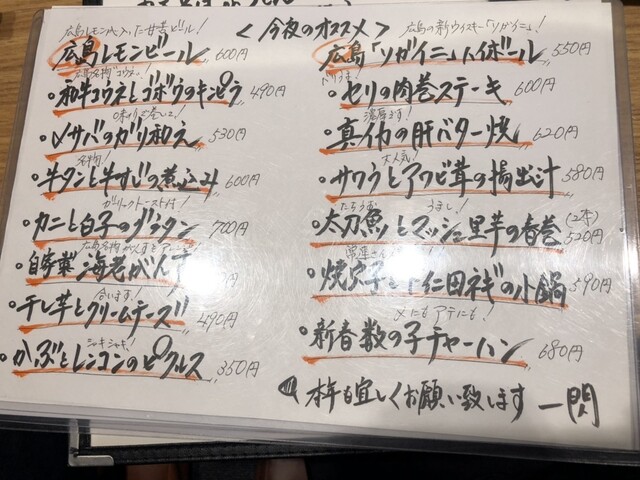 ＜今夜のオススメ＞
広島レモンビール 600円
広島名物コウネ!
・和牛コウネとゴボウのキンピラ 490円
・〆サバのガリ和え 530円
名物!
・牛タンと牛すじの煮込み 600円
ガーリックトースト付!
・カニと白子のグラタン 700円
・自家製 海老がんす
合います!
・干し芋とクリームチーズ 490円
シャキシャキ!
・かぶとレンコンのピクルス 350円
広島の新ウイスキー「ソガイニ」!
広島「ソガイニ」ハイボール 550円
・セリの肉巻ステーキ 600円
濃厚です!
・真イカの肝バター焼 620円
大人気!
・サワラとアワビ茸の揚出汁 580円
たちうお うまし!
・太刀魚とマッシュ里芋の春巻 (2本) 520円
・焼穴子と下仁田ネギの小鍋 590円
〆にもアテにも!
・新春数の子チャーハン 680円
本年も宜しくお願い致します 一閃